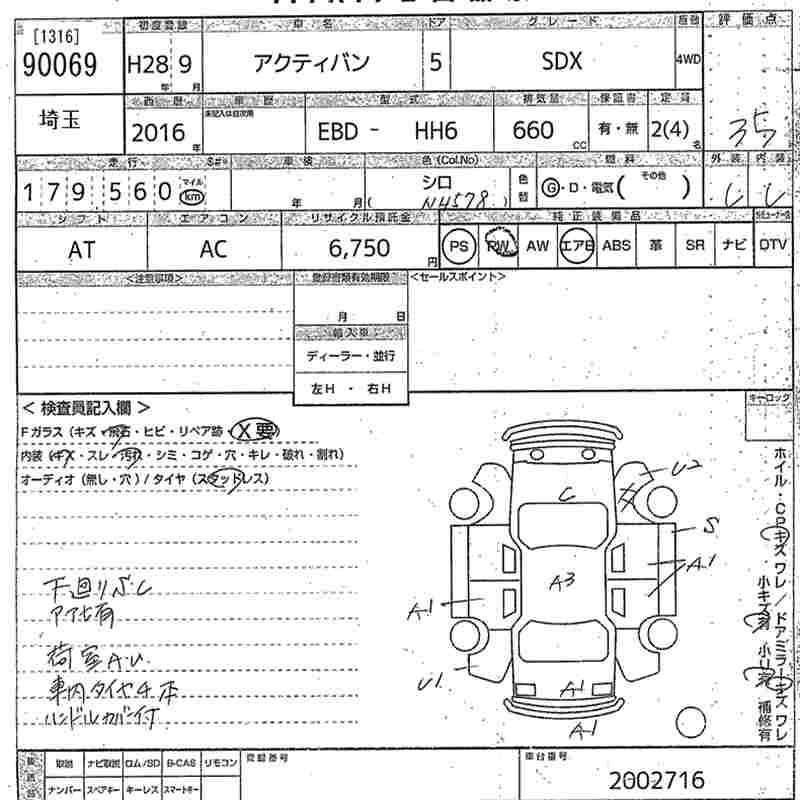 初度登録 車名 ドア グレード 評価点
[1316]
90069 H28 9 アクティバン 5 SDX 4WD
年 月
埼玉
西暦 車歴 型式 排気量 保証書 定員
2016 EBD - HH6 660 有・無 2(4)
年 CC 名
35
走行 車検 色(Col.No) 燃料 外装 内装
179,560 マイル km 年 月 シロ N4578 色替 G・D・電気( その他 ) C C
シフト エアコン リサイクル預託金 純正装備品
AT AC 6,750 円 PS PW AW エアB ABS 革 SR ナビ DTV
<注意事項> 登録書類有効期限 <セールスポイント>
月 日
輸入車
ディーラー・並行
左H ・ 右H
<検査員記入欄> キーロック
Fガラス(キズ・飛石・ヒビ・リペア跡・X要)
内装(キズ・スレ・汚れ・シミ・コゲ・穴・キレ・破れ・割れ)
オーディオ(無し・穴)/タイヤ(スタッドレス)
U2
C
S
A1
A3
A1
U1
A1
A1
ホイル・CPキズ ワレ/ドアミラーキズ ワレ
小キズ有 小U有 補修有
下廻りサビ
荷室AU
車内タイヤ4本
ハンドルカバー付
取説 ナビ取説 ロム/SD B-CAS リモコン 登録番号 車台番号
ナンバー スペアキー キーレス スマートキー
2002716